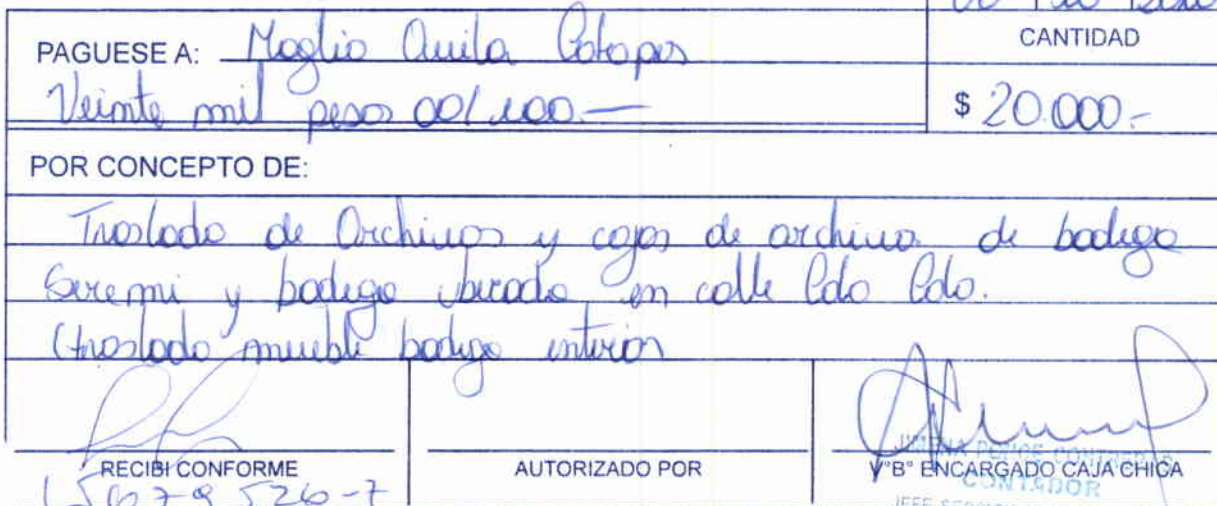 CANTIDAD
PAGUESE A: Moglio Avila Cotapos
Veinte mil pesos 00/100.-
$ 20.000-
POR CONCEPTO DE:
Traslado de Archivos y cajas de archivo de bodega
Seremi y bodega ubicada en calle Colo Colo.
(traslado mueble bodega interior
RECIBI CONFORME
AUTORIZADO POR
V°B° ENCARGADO CAJA CHICA
PONCE CONTRERAS
CONTADOR